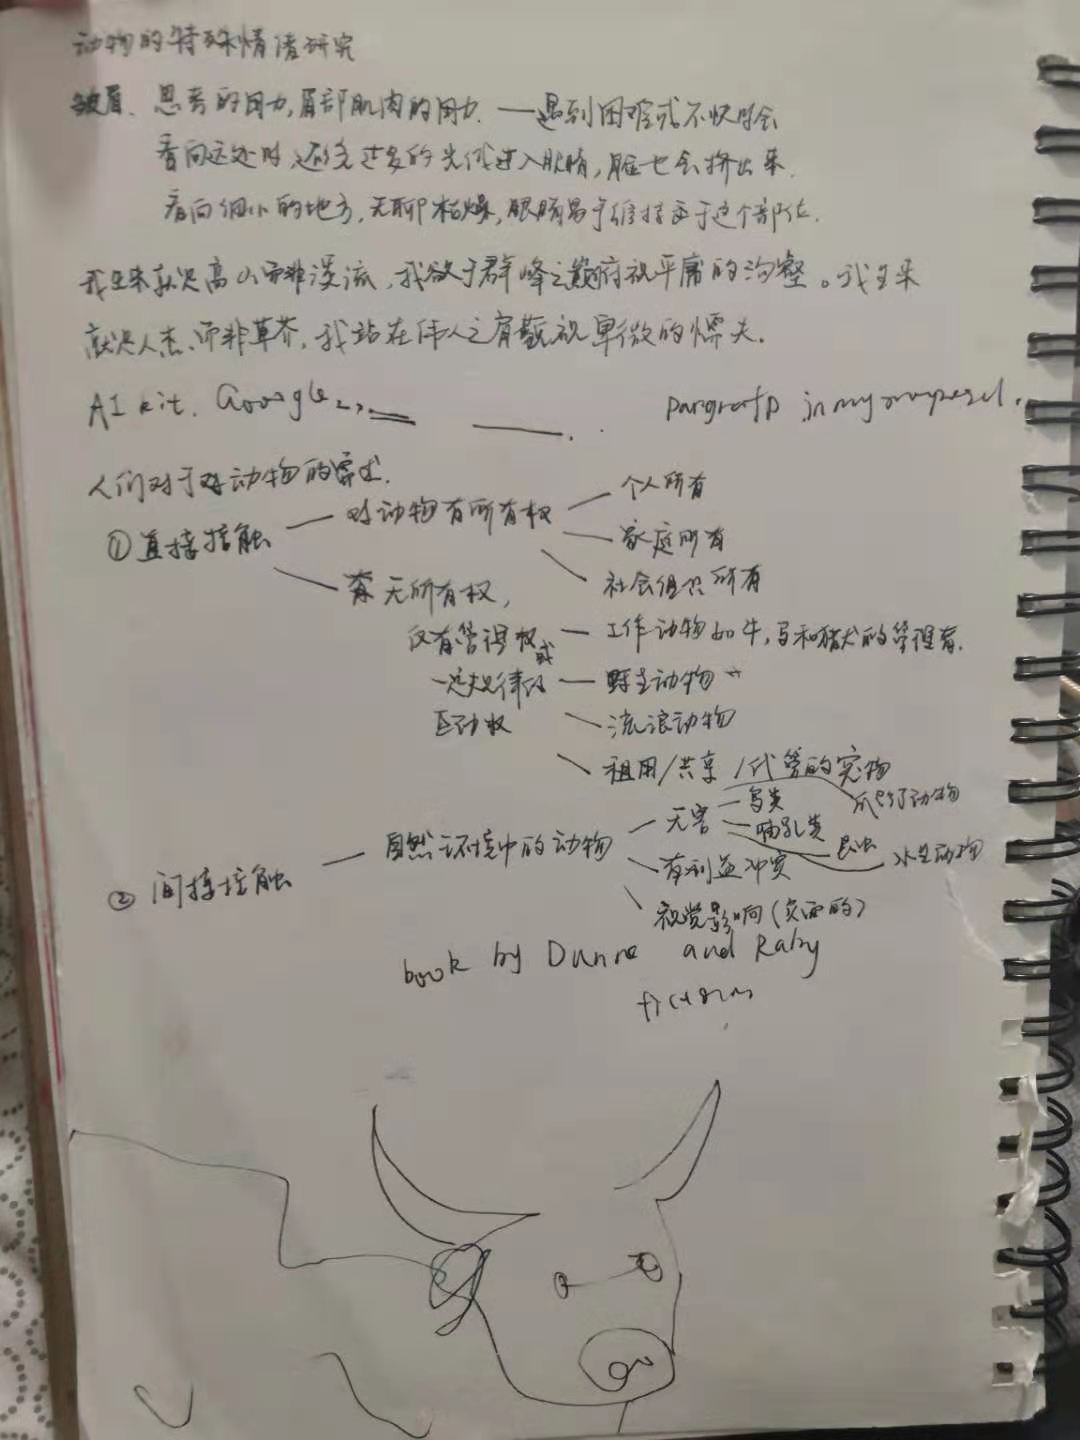 动物的特殊情绪研究
皱眉、思考的用力,眉部肌肉的用力.——遇到困难或不快时会
看向远处时 避免过多的光线进入眼睛,脸也会挤出来.
看向细小的地方,无聊枯燥,眼睛易于维持
我生来就是高山而非溪流,我欲于群峰之巅俯视平庸的沟壑。我生来
就是人杰、而非草芥,我站在伟人之肩藐视卑微的懦夫.
AI kit. Google
in my
人们对于对动物的需求.
①直接接触
对动物有所有权
个人所有
家庭所有
社会组织所有
无所有权,
仅有管理权或
工作动物如牛,马和猎犬的管理者.
野生动物
流浪动物
租用/共享/代管的宠物
②间接接触
自然环境中的动物
无害
鸟类
爬行动物
哺乳类
昆虫
水生动物
有利益冲突
视觉影响(负面的)
book by Dunne and Raby